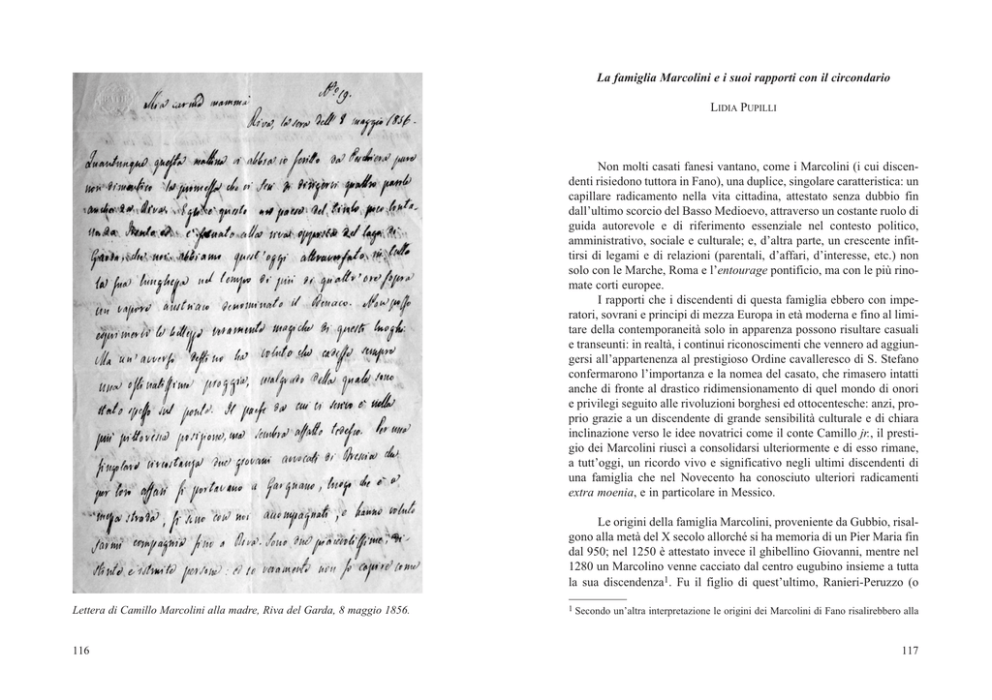 Mia car.ma mamma
N.o 19.
Riva, la sera dell' 8 maggio 1856.
Quantunque questa mattina vi abbia io scritto da Peschiera pure
non dimentico la promessa che vi feci di dirigervi quattro parole
anche da Riva. Egli è questo un paese del Tirolo poco lonta-
no da Trento ed è situato alla riva opposta del lago di
Garda, che noi abbiamo quest'oggi attraversato in tutta
la sua lunghezza nel tempo di più di quattro ore sopra
un vapore austriaco denominato il Benaco. Non posso
esprimervi le bellezze veramente magiche di questi luoghi.
Ma un'avverso destino ha voluto che cadesse sempre
una ostinatissima pioggia, malgrado della quale sono
stato spesso sul ponte. Il paese da cui vi scrivo è nella
più pittoresca posizione, ma sembra affatto tedesco. Per una
singolare circostanza due giovani avvocati di Brescia che
per loro affari si portavano a Gargnano, luogo che è a
mezza strada, si sono con noi accompagnati, e hanno voluto
farmi compagnia fino a Riva. Sono due piacevolissime, di-
stinte e istruite persone: ed io veramente non so capire come
Lettera di Camillo Marcolini alla madre, Riva del Garda, 8 maggio 1856.
116
La famiglia Marcolini e i suoi rapporti con il circondario
LIDIA PUPILLI
Non molti casati fanesi vantano, come i Marcolini (i cui discen-
denti risiedono tuttora in Fano), una duplice, singolare caratteristica: un
capillare radicamento nella vita cittadina, attestato senza dubbio fin
dall'ultimo scorcio del Basso Medioevo, attraverso un costante ruolo di
guida autorevole e di riferimento essenziale nel contesto politico,
amministrativo, sociale e culturale; e, d'altra parte, un crescente infit-
tirsi di legami e di relazioni (parentali, d'affari, d'interesse, etc.) non
solo con le Marche, Roma e l'entourage pontificio, ma con le più rino-
mate corti europee.
I rapporti che i discendenti di questa famiglia ebbero con impe-
ratori, sovrani e principi di mezza Europa in età moderna e fino al limi-
tare della contemporaneità solo in apparenza possono risultare casuali
e transeunti: in realtà, i continui riconoscimenti che vennero ad aggiun-
gersi all'appartenenza al prestigioso Ordine cavalleresco di S. Stefano
confermarono l'importanza e la nomea del casato, che rimasero intatti
anche di fronte al drastico ridimensionamento di quel mondo di onori
e privilegi seguito alle rivoluzioni borghesi ed ottocentesche: anzi, pro-
prio grazie a un discendente di grande sensibilità culturale e di chiara
inclinazione verso le idee novatrici come il conte Camillo jr., il presti-
gio dei Marcolini riuscì a consolidarsi ulteriormente e di esso rimane,
a tutt'oggi, un ricordo vivo e significativo negli ultimi discendenti di
una famiglia che nel Novecento ha conosciuto ulteriori radicamenti
extra moenia, e in particolare in Messico.
Le origini della famiglia Marcolini, proveniente da Gubbio, risal-
gono alla metà del X secolo allorché si ha memoria di un Pier Maria fin
dal 950; nel 1250 è attestato invece il ghibellino Giovanni, mentre nel
1280 un Marcolino venne cacciato dal centro eugubino insieme a tutta
la sua discendenza1. Fu il figlio di quest'ultimo, Ranieri-Peruzzo (o
1 Secondo un'altra interpretazione le origini dei Marcolini di Fano risalirebbero alla
117